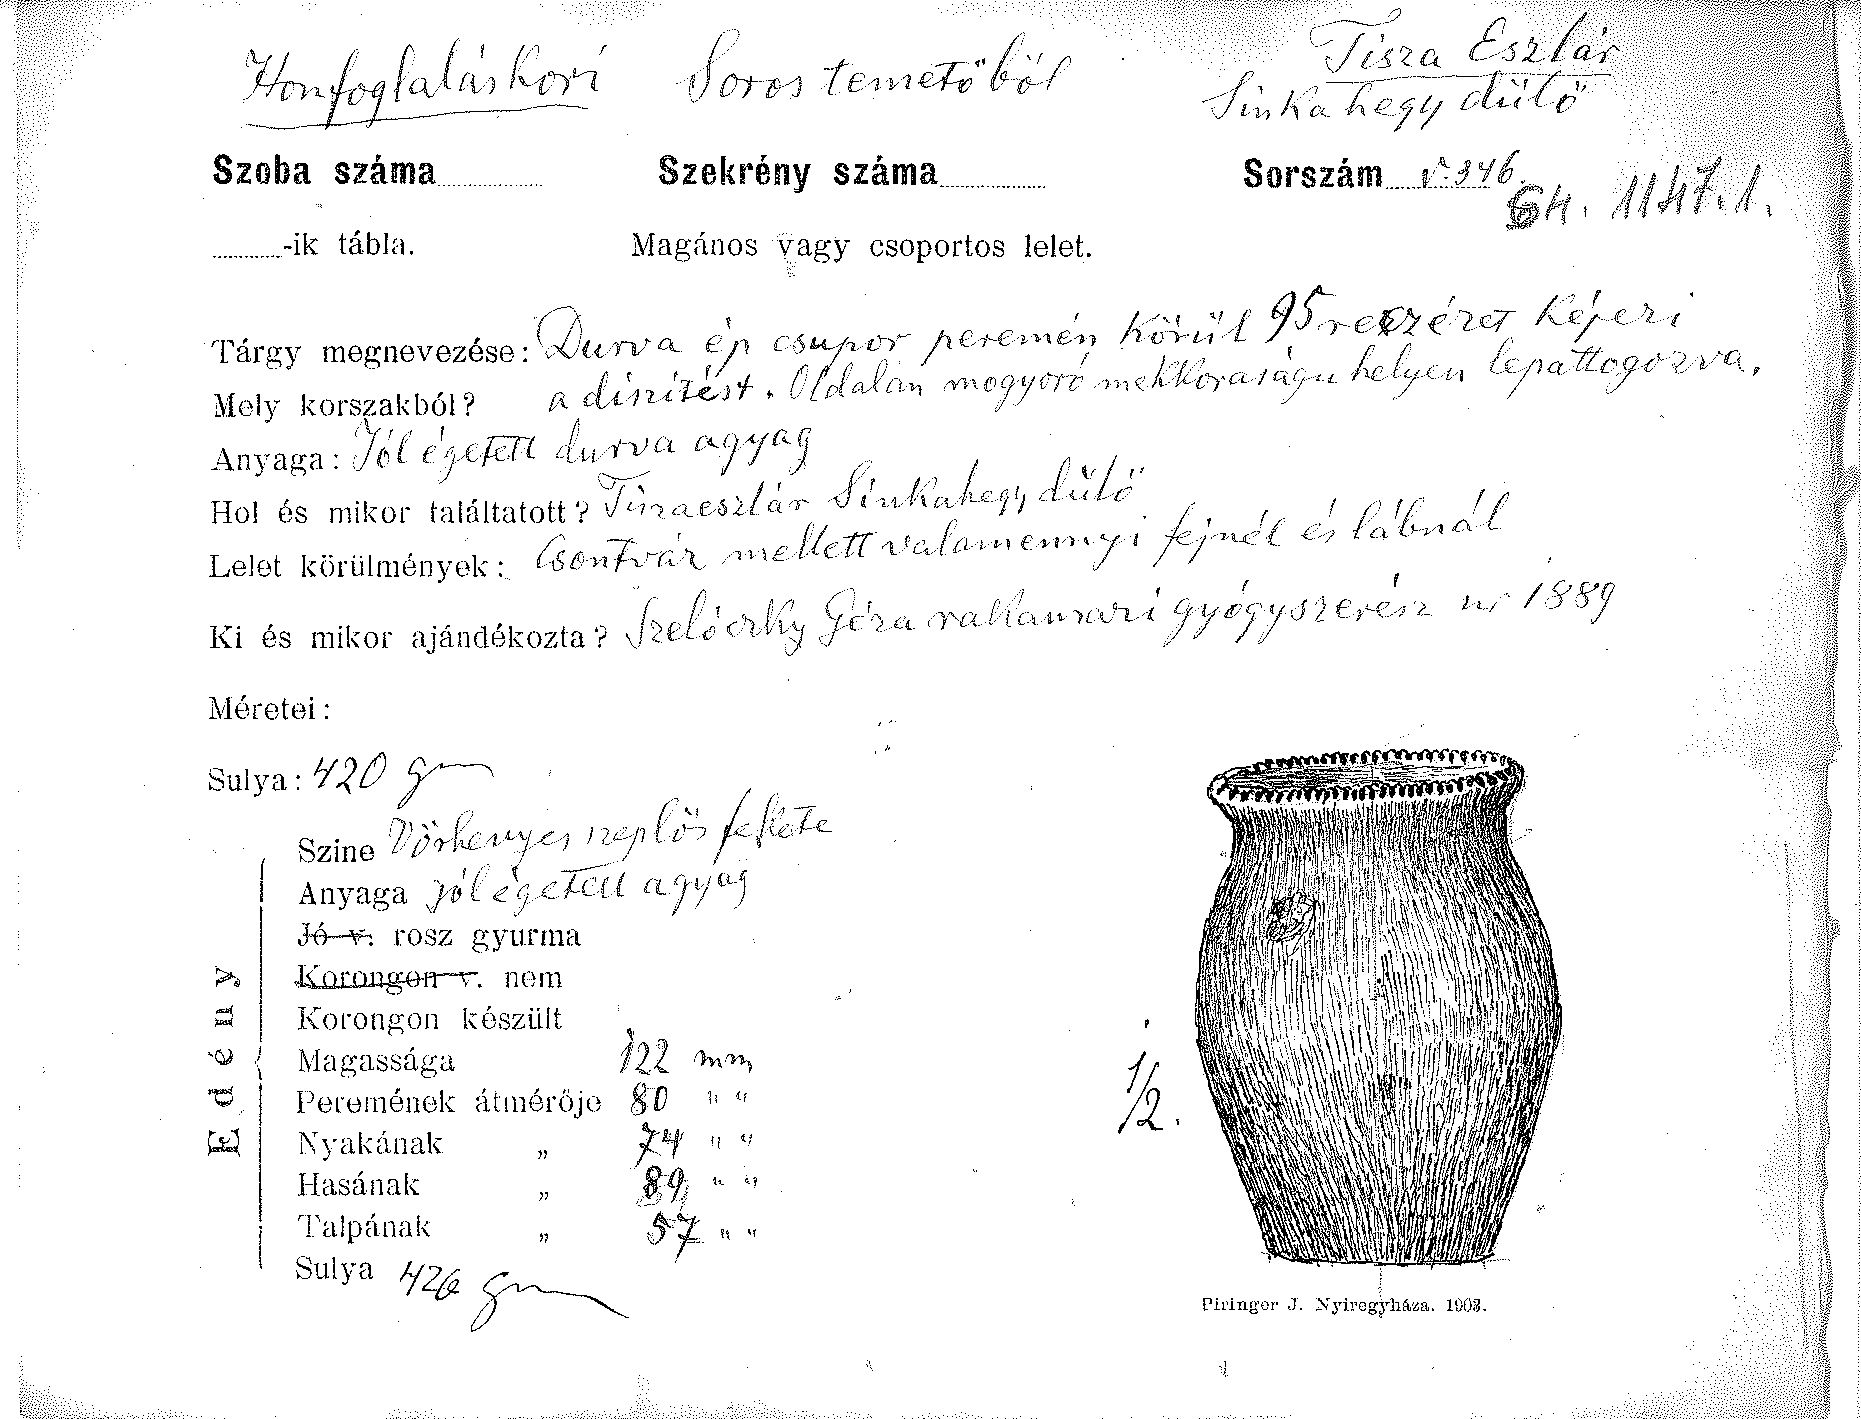 Honfoglaláskori Soros temetőből Tisza Eszlár
Sinkahegy dűlő
Szoba száma Szekrény száma Sorszám 346.
64. 1147.1.
-ik tábla. Magános vagy csoportos lelet.
Tárgy megnevezése: Durva ép csupor peremén körül 95 képezi
Mely korszakból? a díszítést. Oldalán mogyoró mekkoraságu helyen lepattogozva.
Anyaga: Jól égetett durva agyag
Hol és mikor találtatott? Tiszaeszlár Sinkahegy dűlő
Lelet körülmények: Csontváz mellett valamennyi fejnél és lábnál
Ki és mikor ajándékozta? Géza rakamazi gyógyszerész ur 1889
Méretei:
Sulya: 420 gm
Edény
Szine Vörhenyes szeplős fekete
Anyaga jól égetett agyag
Jó v. rosz gyurma
Korongon v. nem
Korongon készült
Magassága 122 mm
Peremének átmérője 80 " "
Nyakának „ 74 " "
Hasának „ 89 " "
Talpának „ 57 " "
Sulya 426 gm
1/2.
Piringer J. Nyiregyháza. 1903.